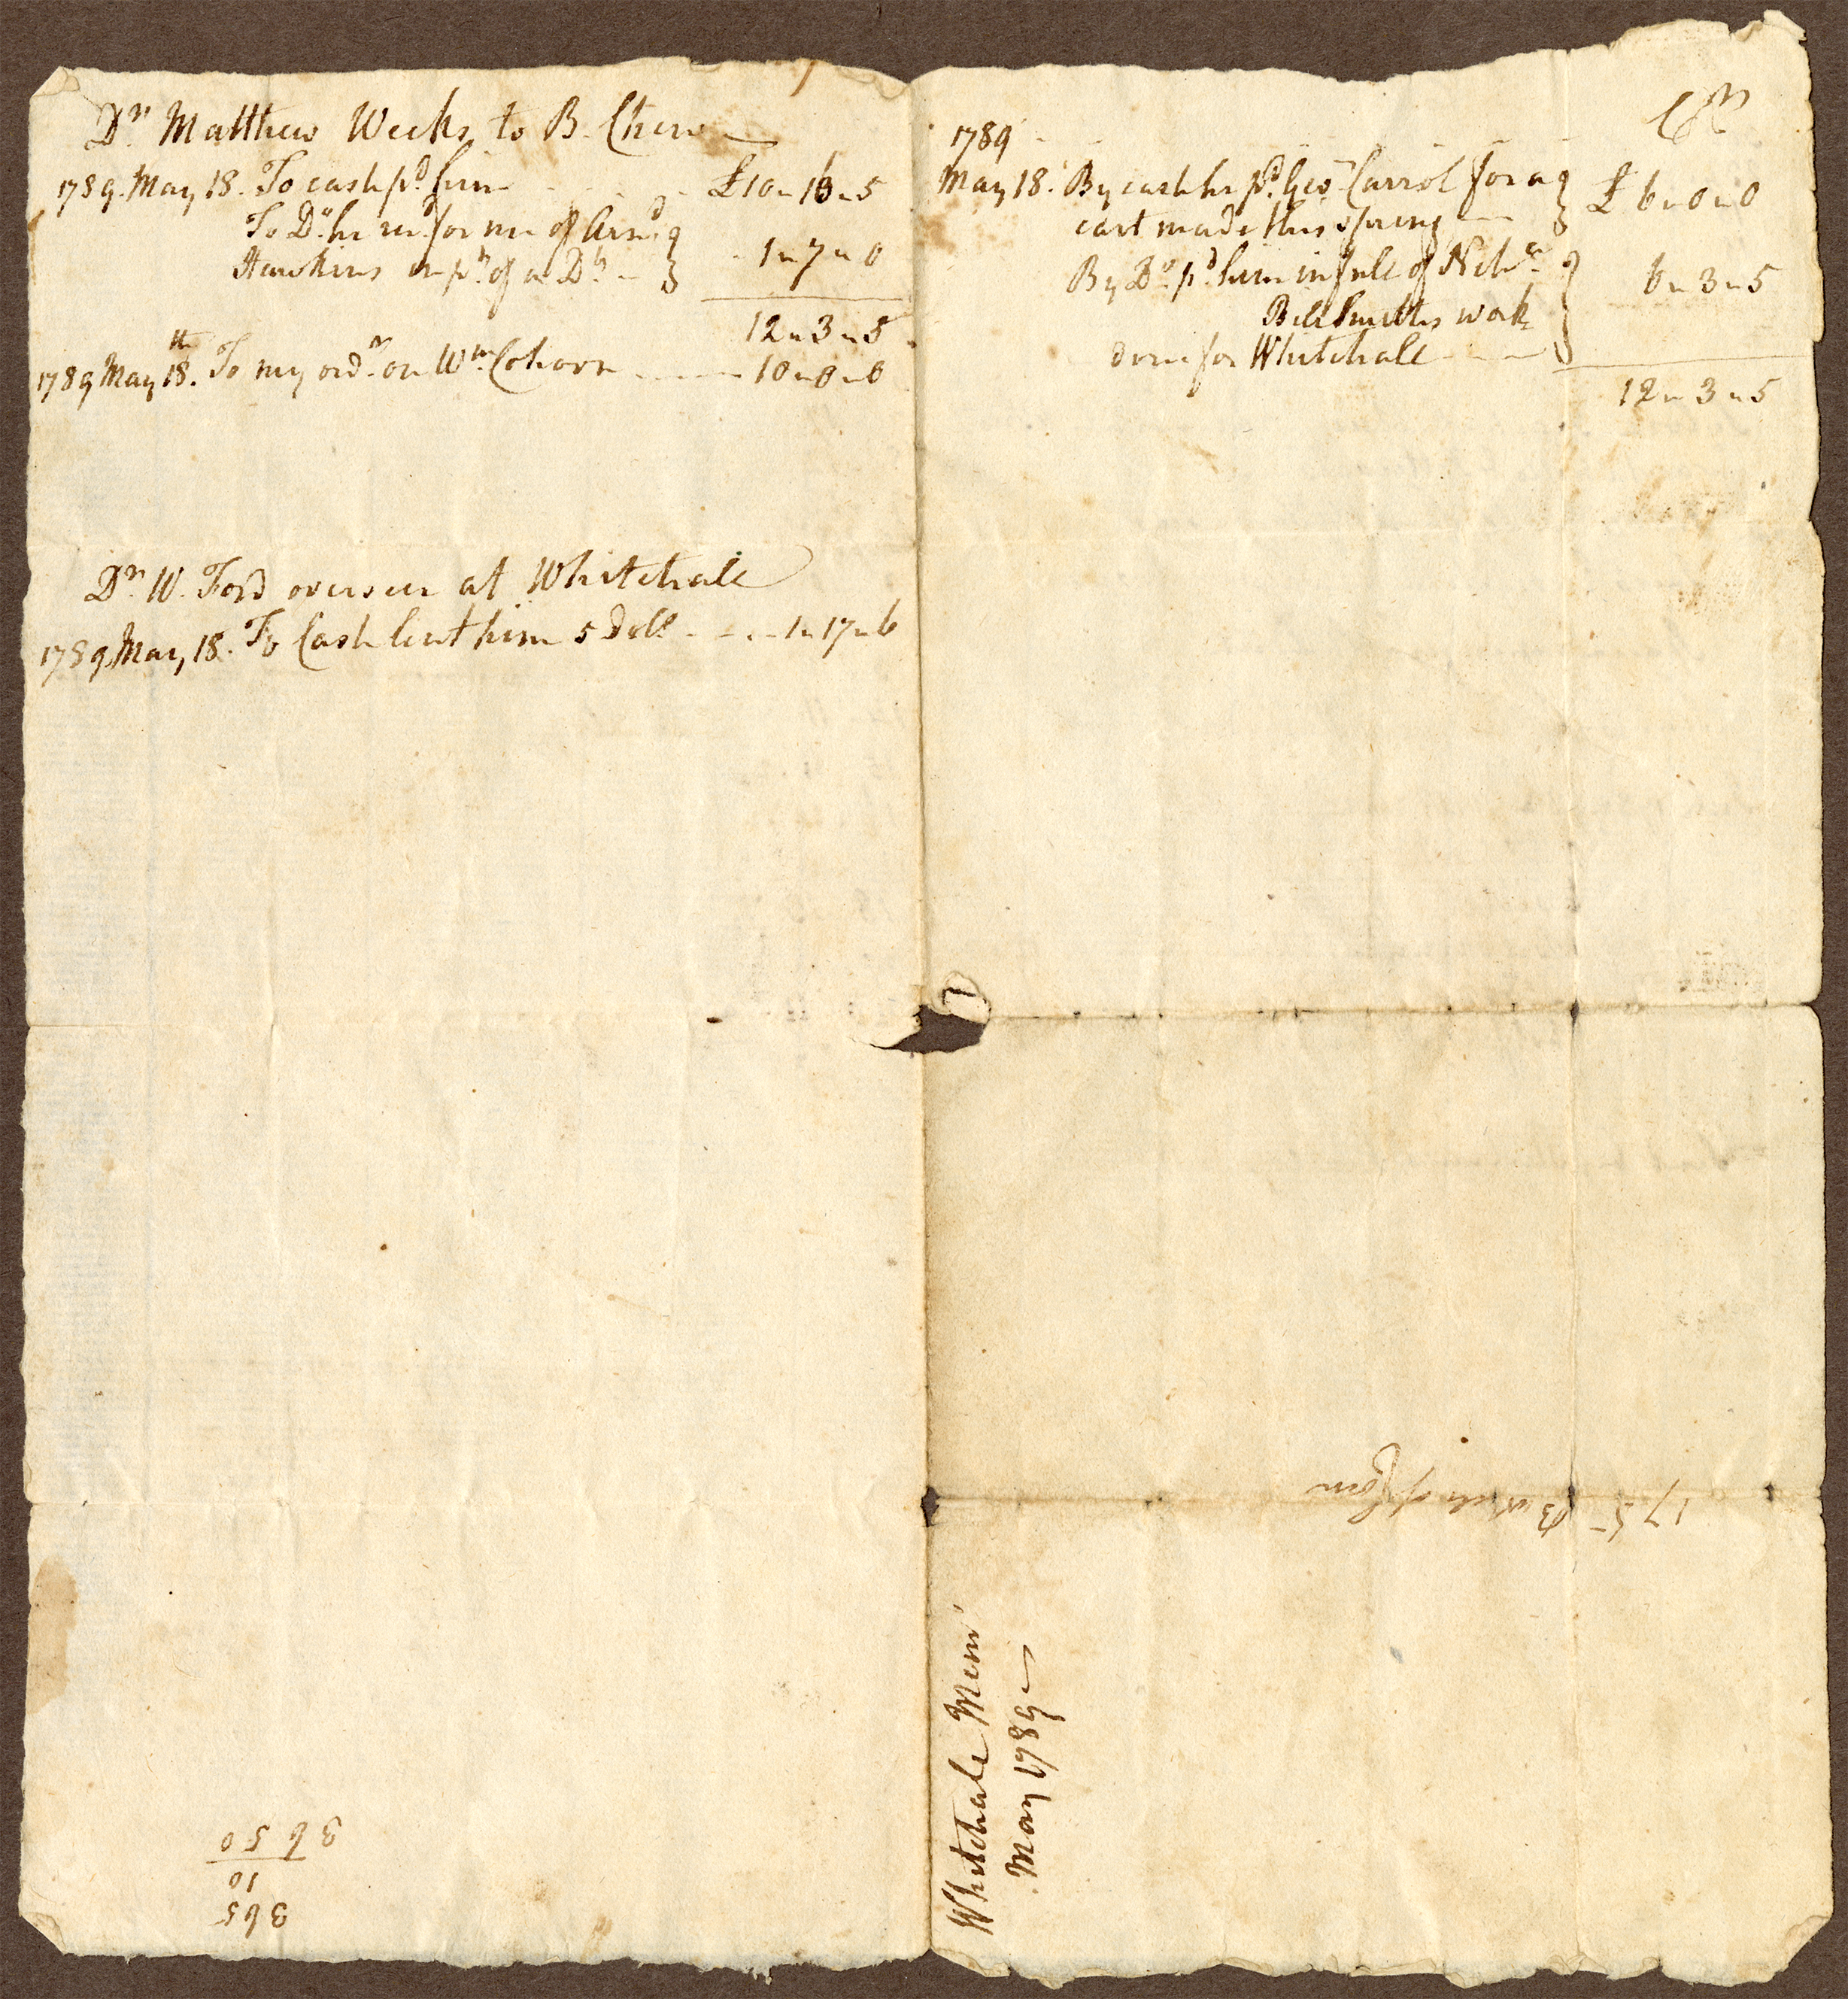 Dr. Matthew Weeks to B. Chew
1789. May 18. To cash pd. him £10 " 16 " 5
To Do. he recd. for me of Arnd.
Hawkins in pt. of a Dt. 1 " 7 " 0
12 " 3 " 5
1789 May 18th. To my ordr. on Wm. Cohorn 10 " 0 " 0
Dr. W. Ford overseer at Whitehall
1789 May, 18. To Cash lent him 5 Doll 1 " 17 " 6
3650
10
365
Cr
1789
May 18. By cash he pd. Geo. Carrol for a £ 6 " 0 " 0
cart made this spring
By Do. pd. him in full of
Bill Smiths work 6 " 3 " 5
done for Whitehall
12 " 3 " 5
175 Bushels of Corn
Whitehall Mem
May 1789